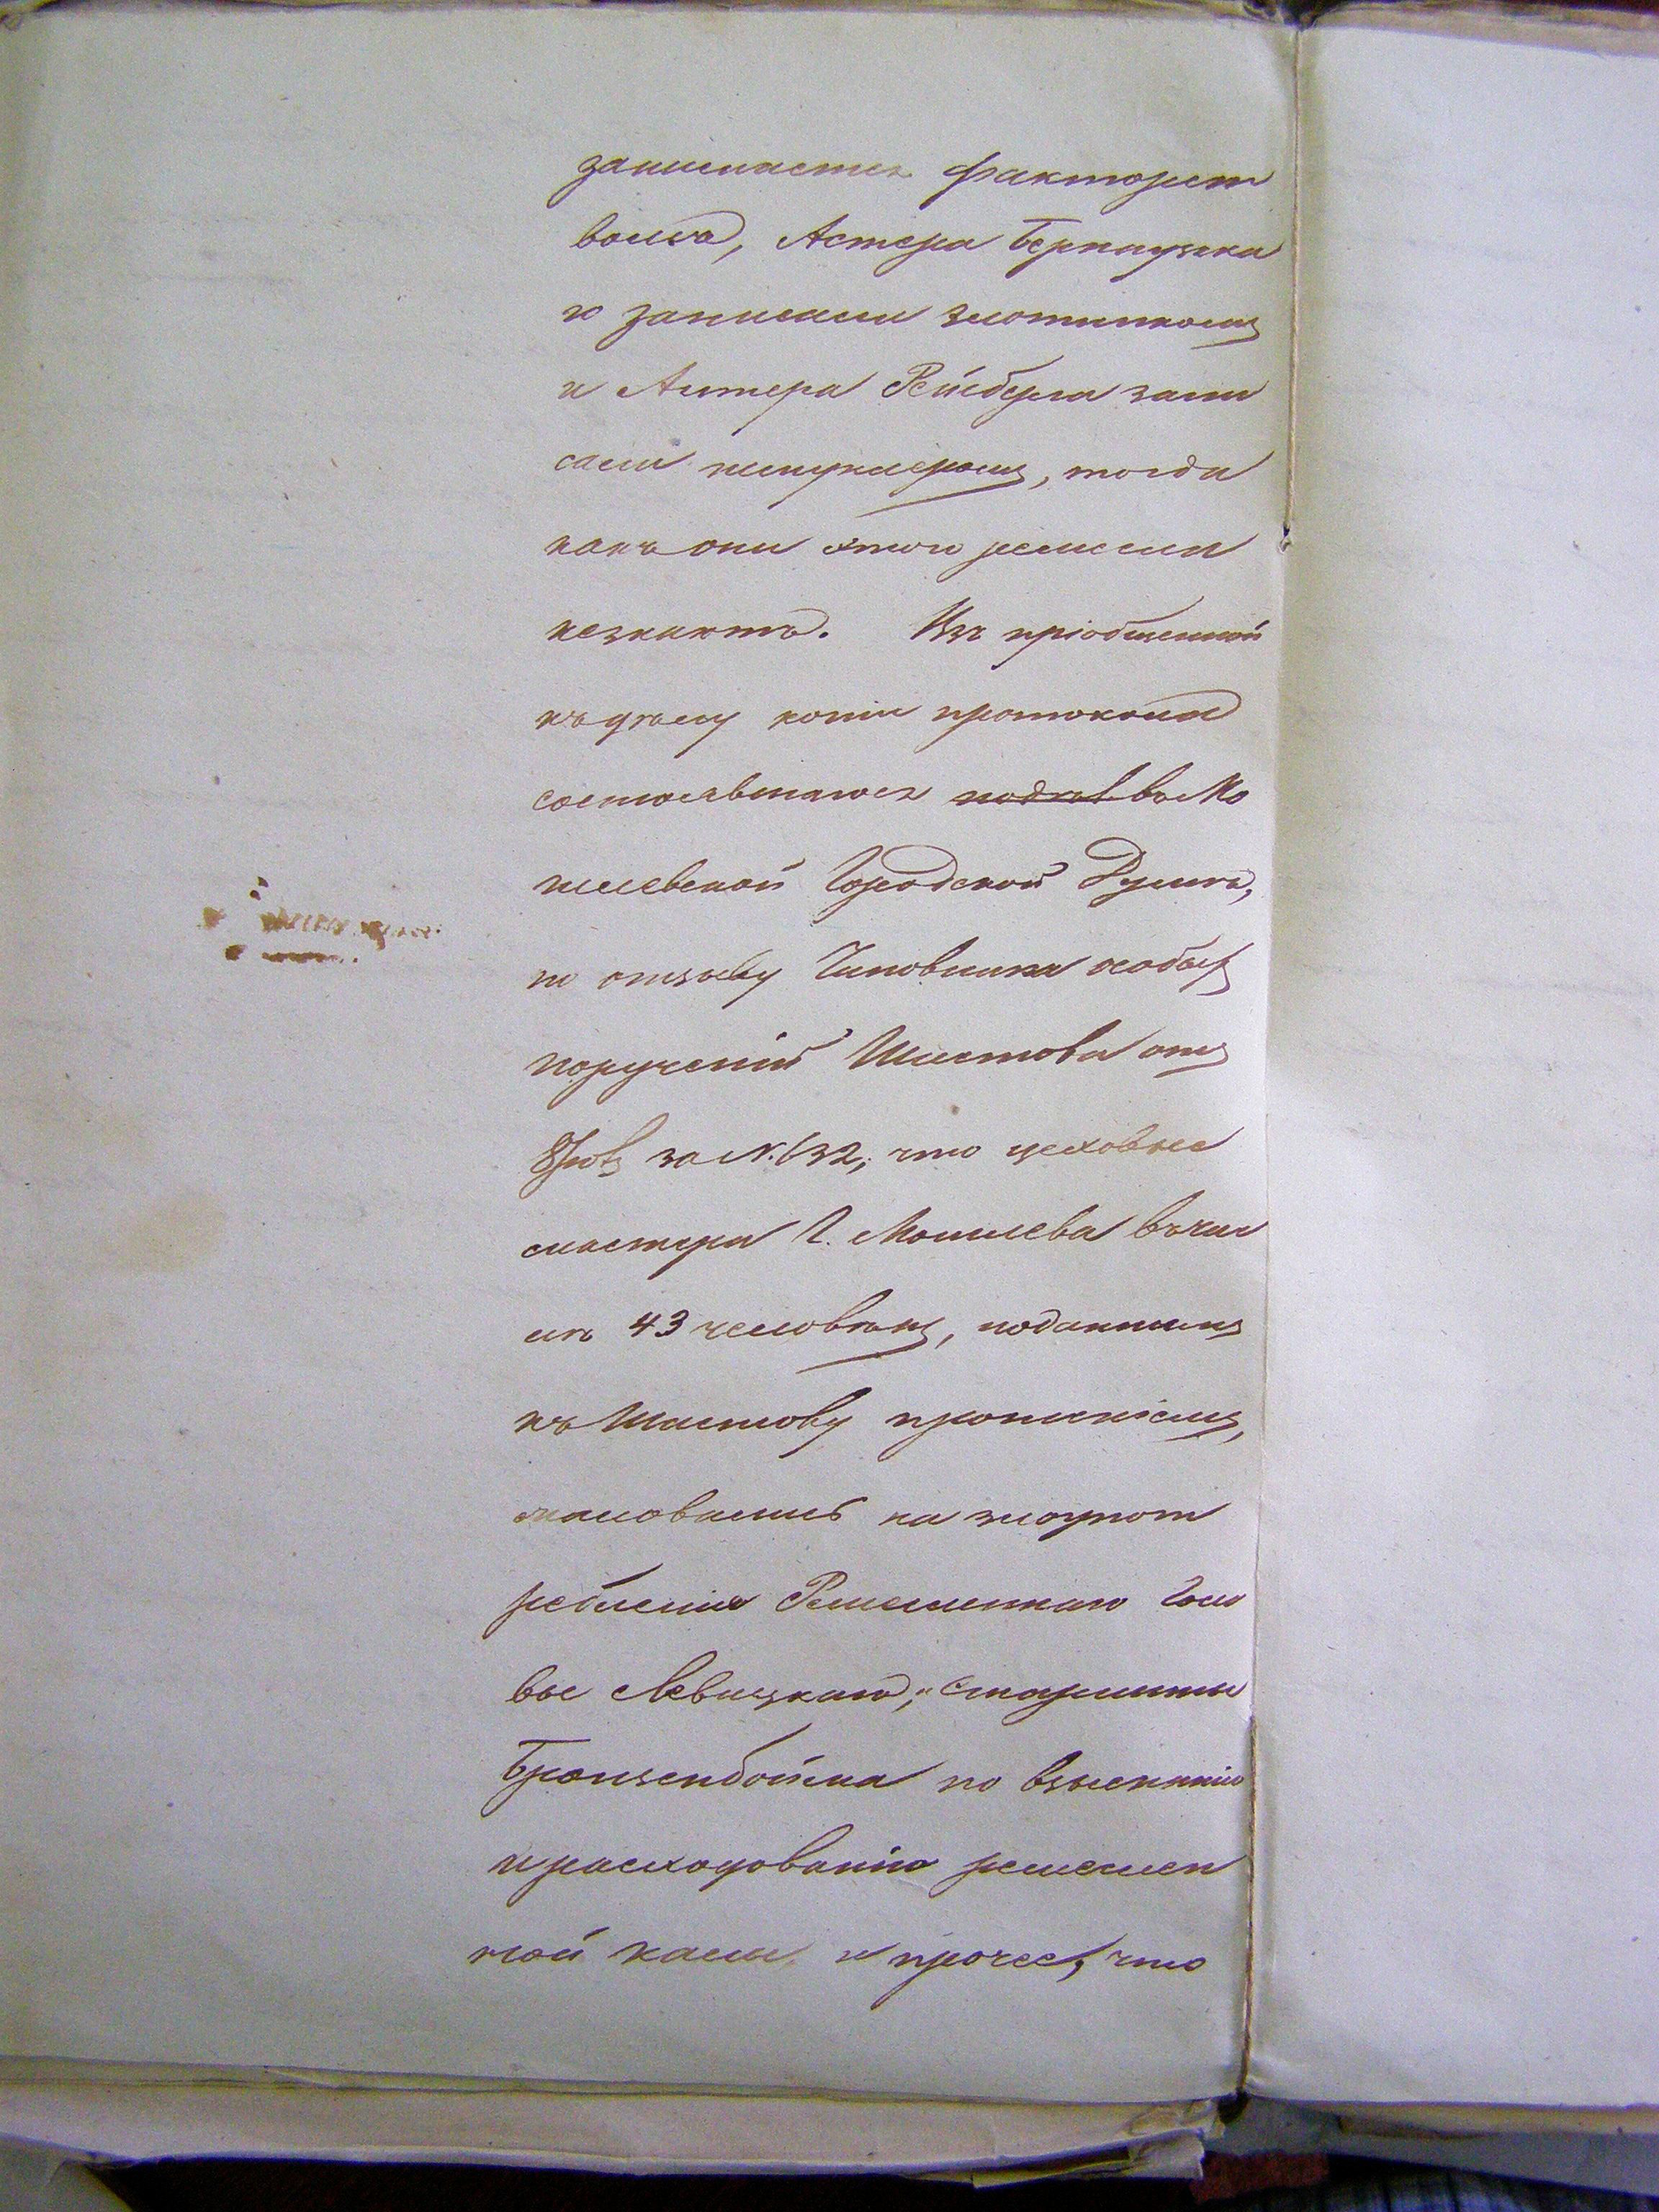 занимается факторст
вомъ, Астера Бернацка
го записали золотникомъ
и Антера Рейберга запи
сали парукмеромъ, тогда
какъ они этого ремесла
незнаютъ. Изъ пріобщенной
къ дѣлу копіи протокола
состоявшагося подъ въ Мо
гилевской Городской Думѣ,
по отзыву Чиновника особыхъ
порученій Шистова отъ
за N. 632, что цеховые
мастера Г. Могилева въ чис
лѣ 43 человѣкъ, поданнымъ
къ Шистову прошеніемъ,
жаловались на злоупот
ребленія Ремесленнаго Голо
вы Левицкаго, и Старшины
Бронзенбойма по взысканію
и расходованію ремеслен
ной казны и прочее, что